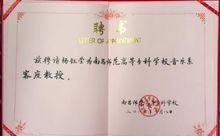 聘书
LETTER OF APPOINTMENT
兹聘请杨钰莹为南昌师范高等专科学校音乐系
客座教授。
南昌师范高等专科学校